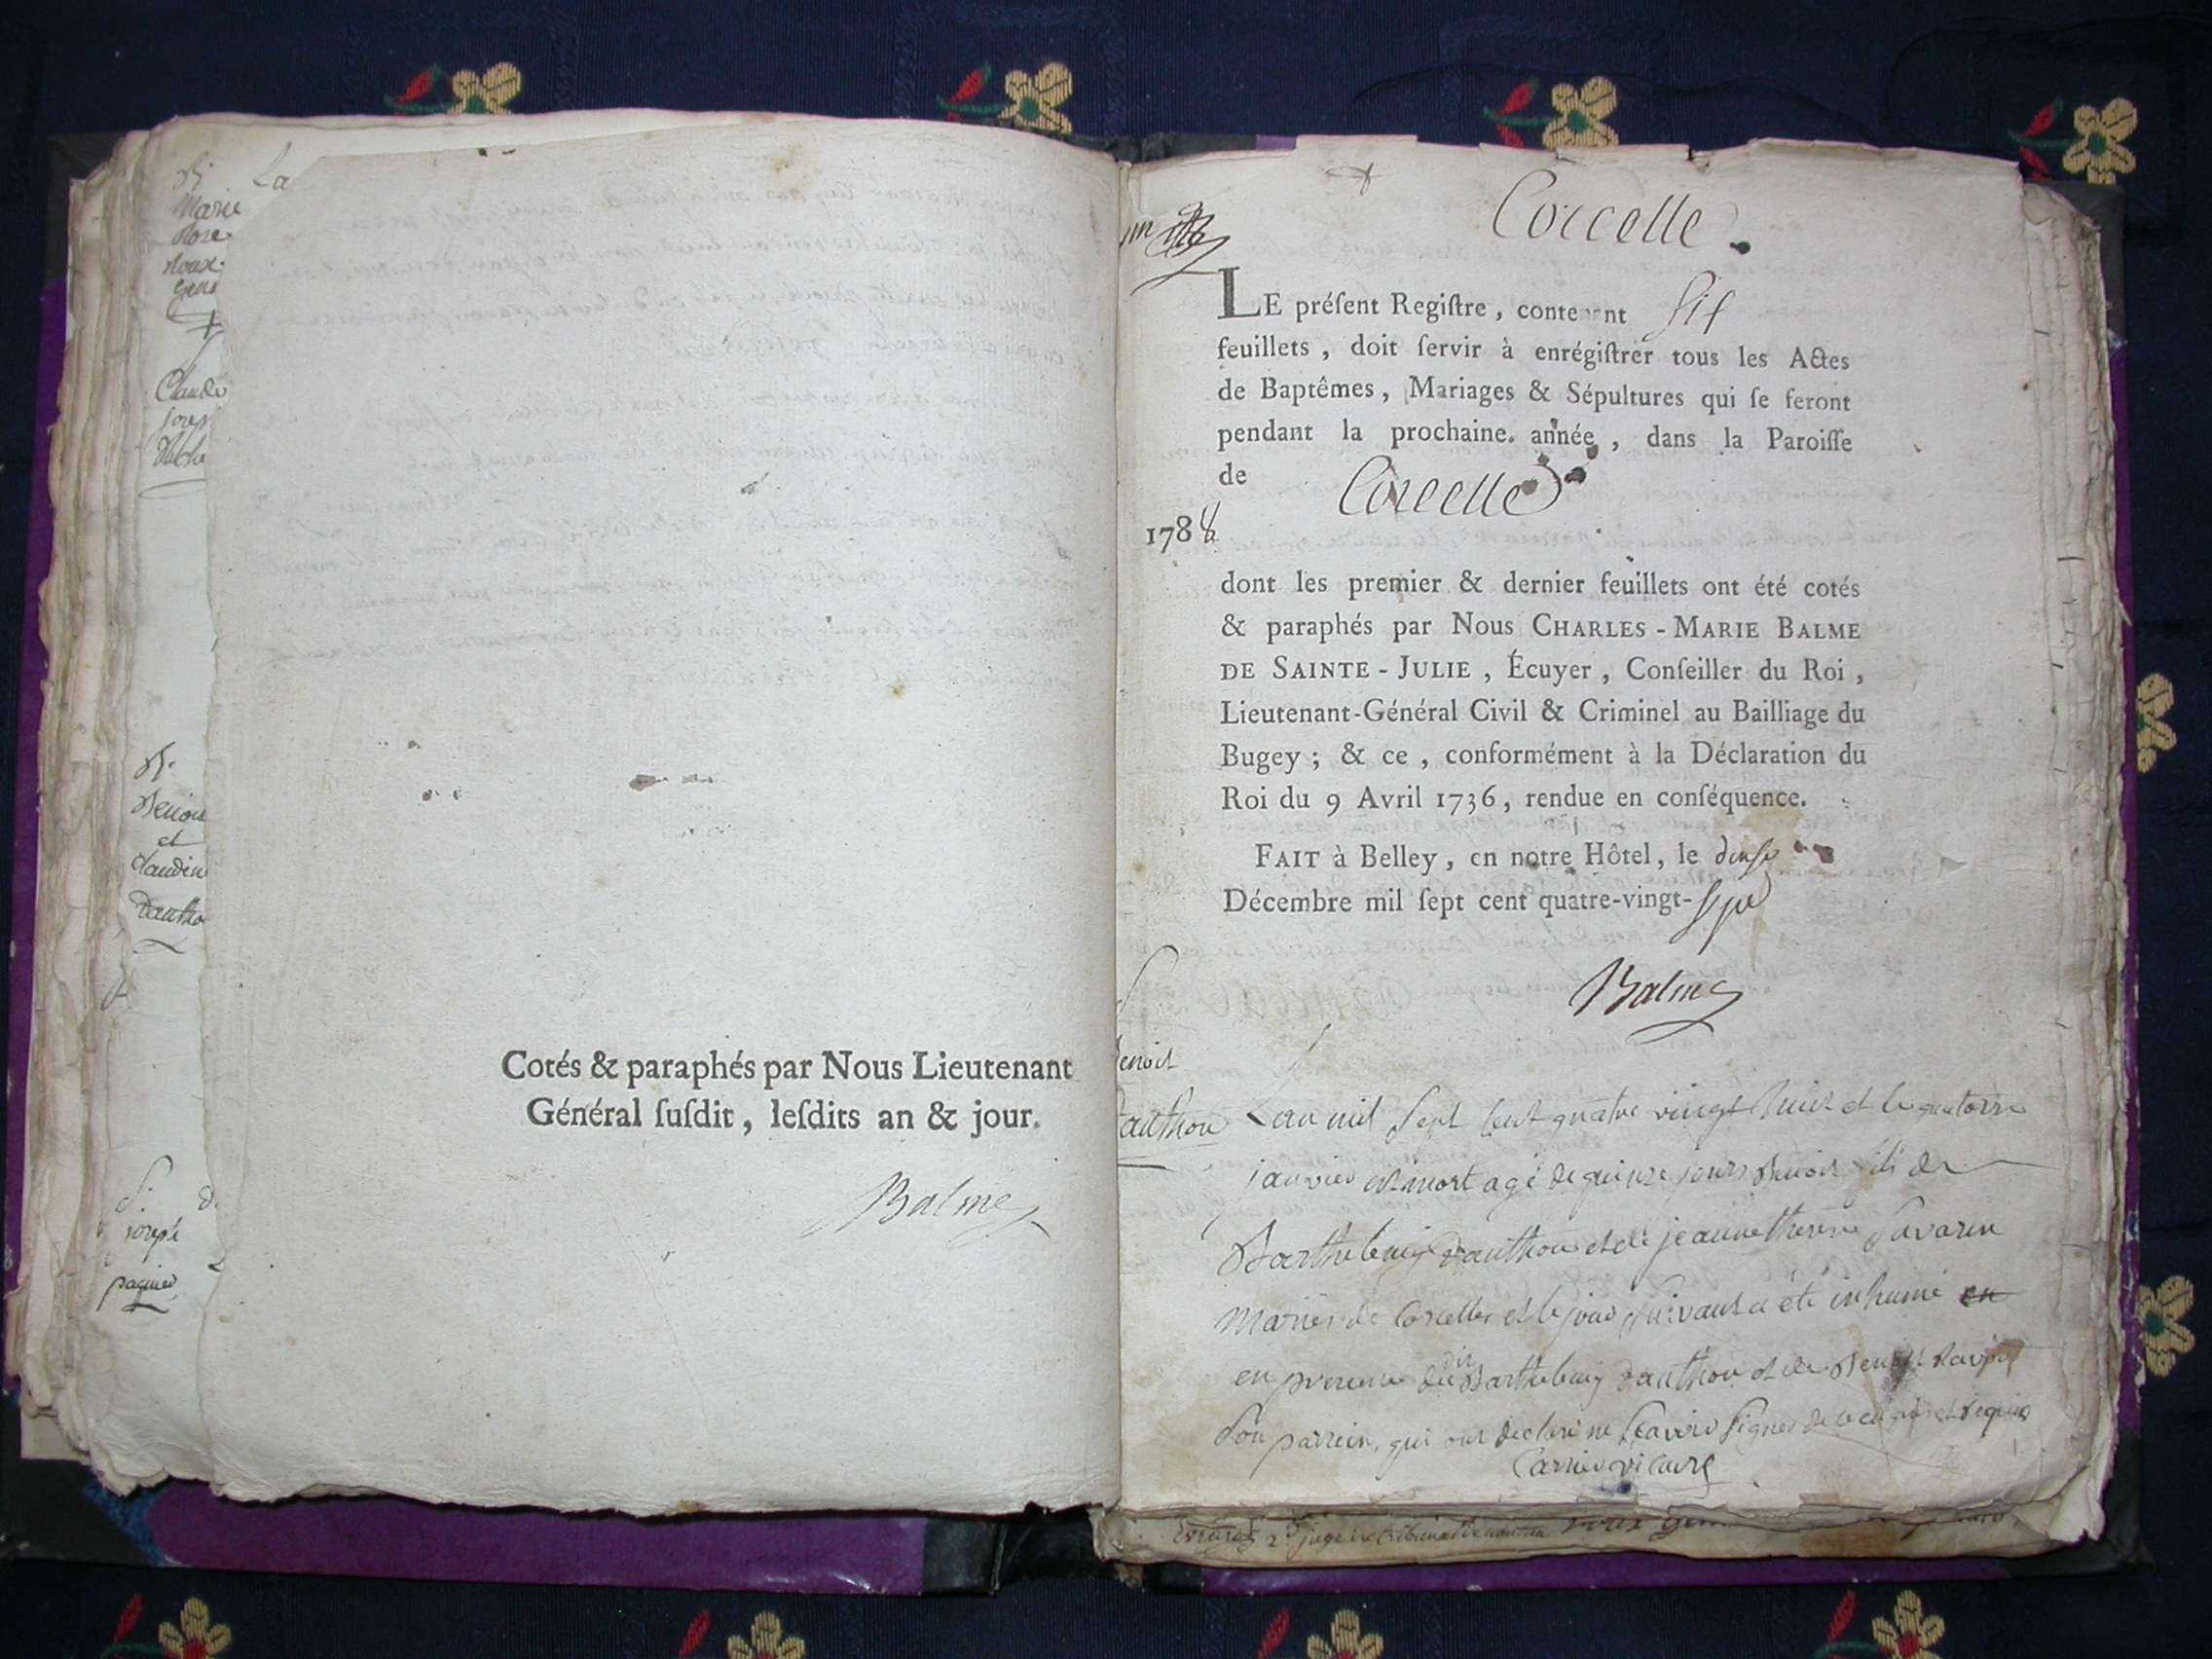 B
Marie
Rose
Roux
La
Claude
Benoit
et
Claudine
Dautho
S.
joseph
paquier
Cotés & paraphés par Nous Lieutenant
Général ſuſdit, leſdits an & jour.
Balme
Corcelle.
LE préſent Regiſtre, contenant six
feuillets, doit ſervir à enrégiſtrer tous les Actes
de Baptêmes, Mariages & Sépultures qui ſe feront
pendant la prochaine année, dans la Paroiſſe
de Corcelle
1788
dont les premier & dernier feuillets ont été cotés
& paraphés par Nous CHARLES-MARIE BALME
DE SAINTE-JULIE, Écuyer, Conſeiller du Roi,
Lieutenant-Général Civil & Criminel au Bailliage du
Bugey; & ce, conformément à la Déclaration du
Roi du 9 Avril 1736, rendue en conſéquence.
FAIT à Belley, en notre Hôtel, le
Décembre mil ſept cent quatre-vingt-sept
Balme
enoit
authon
L'an mil sept cent quatre vingt huit et le quatorze
janvier est mort agé de quinze jours Benoit fils de
Barthelemy Dauthon et de jeanne therese Savarin
mariés de Corcelles et le jour suivant a été inhumé en
en presence dudit Barthelemy Dauthon et de Benoit
son parrein, qui ont declaré ne sçavoir signer de ce enquis et requis
Carrier vicaire